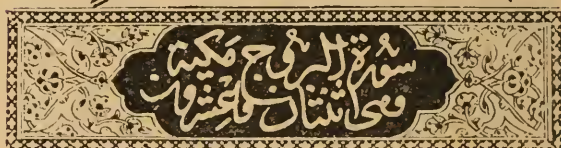 سورة البروج مكية
وهى اثنتان وعشرون